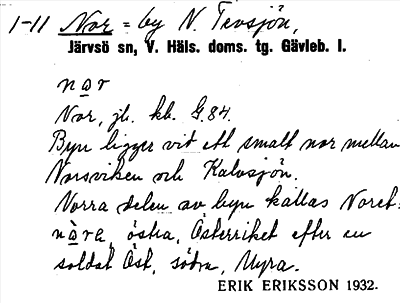 1-11 Nor = by N. Tevsjön,
Järvsö sn, V. Häls. doms. tg. Gävleb. l.
nɑr
Nor, jb. kb. G.84.
Byn ligger vid ett smalt nor mellan
Norsviken och Kalvsjön.
Norra delen av byn kallas Noret:
östra, Österriket efter en
soldat Öst, södra, Myra.
ERIK ERIKSSON 1932.